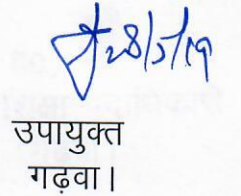 28/2/19
उपायुक्त
गढ़वा।